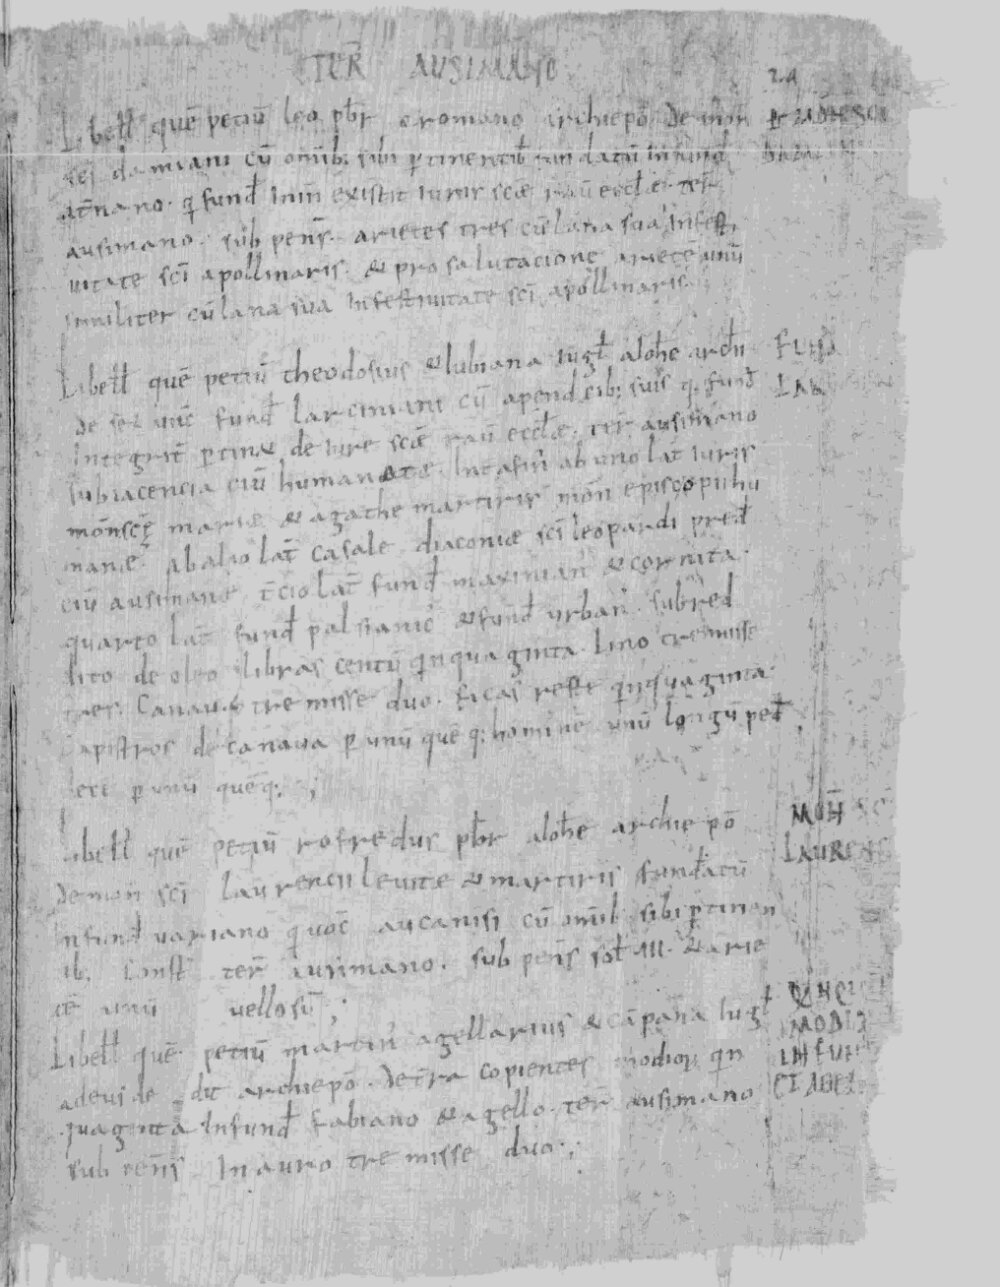 TER̄ AUSIMANO
Libell̄ quē petiū leo pb̄r a romano archiepō de mōn
sc̄i damiani cū omib; sibi ꝑtinentib; fundatū in fund̄
qi fund̄ inin existit iuris scæ rau ecclæ. ter̄
ausimano. sub pens̄. arietes tres cū lana sua infesti
uitate sc̄i apollinaris. & pro salutacione arietē unū
similiter cū lana sua infestiuitate sc̄i apollinaris.
Libell̄ quē petiū theodosius & lubiana iuḡl aloh̄e archi
de fund̄ larciniani cū apendcib; suis q. fund̄
Integrit̄ ꝑtin& de iure scæ rau ecclæ. ter̄ ausimano
subiacencia ciū humanatæ. Int afin̄ ab uno lat̄ iuris
mōn scę mariæ & agathe martiris mōn episcopii hu
manæ. ab alio lat̄ casale diaconiæ sc̄i leopardi pred̄
ciū ausimanæ. t̄cio lat̄ fund̄ maximian̄ & cornita.
quarto lat̄ fund̄ & fund̄ urban̄. sub red
dito de oleo libras centū qinquaginta. lino tremisse
tres. Canau. tremisse duo. ficas reste qinquaginta.
Capistros de canaua ꝑ unū quē q; hominē unū longū ped̄
dece ꝑ unū quēq; ;
Libell̄ quē petiū rofredus pb̄r aloh̄e archiepō
de mōn sc̄i laurencii leuitæ & martiris fundatū
In fund̄ uariano q uoc̄ aucanisi cū omib; sibi ꝑtinen
ib. Const̄ ter̄ ausimano. sub pens̄ sol̄ III. & arie
tē unū uellosū ;
Libell̄ quē petiū martin̄ agellarius & cāpana iuḡl
a deusdedit archiepō. de t̄ra copientes modior qin
quaginta In fund̄ fabiano & agello. ter̄ ausimano
sub pens̄ In auro tremisse duo. ;
FUND
MOÑ SC
LAUREN
MODIO
IN FUN